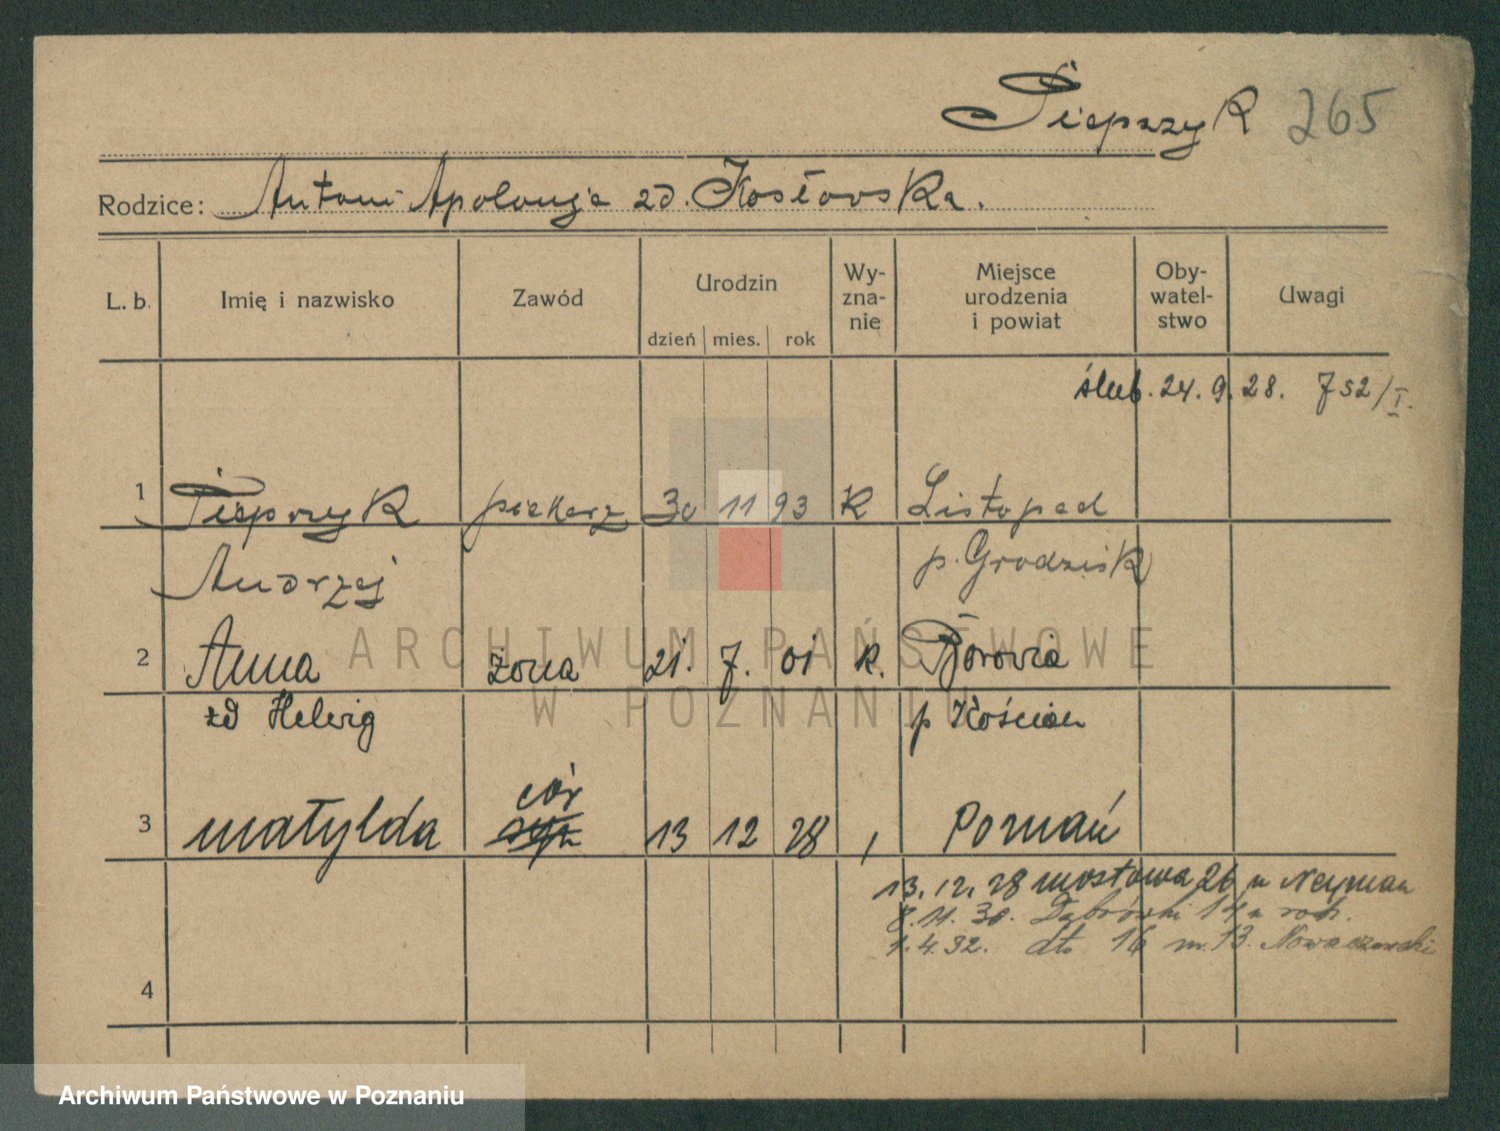 Pieprzyk 265
Rodzice: Antoni Apolonja zd. Kosłowska.
L. b. Imię i nazwisko Zawód Urodzin dzień mies. rok Wy-zna-nie Miejsce urodzenia i powiat Oby-watel-stwo Uwagi
ślub. 24. 9. 28. 752/I.
1 Pieprzyk piekarz 30 11 93 K Listopad
Andrzej p. Grodzisk
2 Anna żona 21. 7. 01 k.
zd Helwig p Kościan
cór
3 Matylda syn 13 12 28 Poznań
13. 12. 28 Mostowa 26 u Neyman
8. 11. 30. Dąbrówki 14
1. 4. 32. dto 16 m. 13. Nowaczewski
4
ARCHIWUM PAŃSTWOWE
W POZNANIU
Archiwum Państwowe w Poznaniu